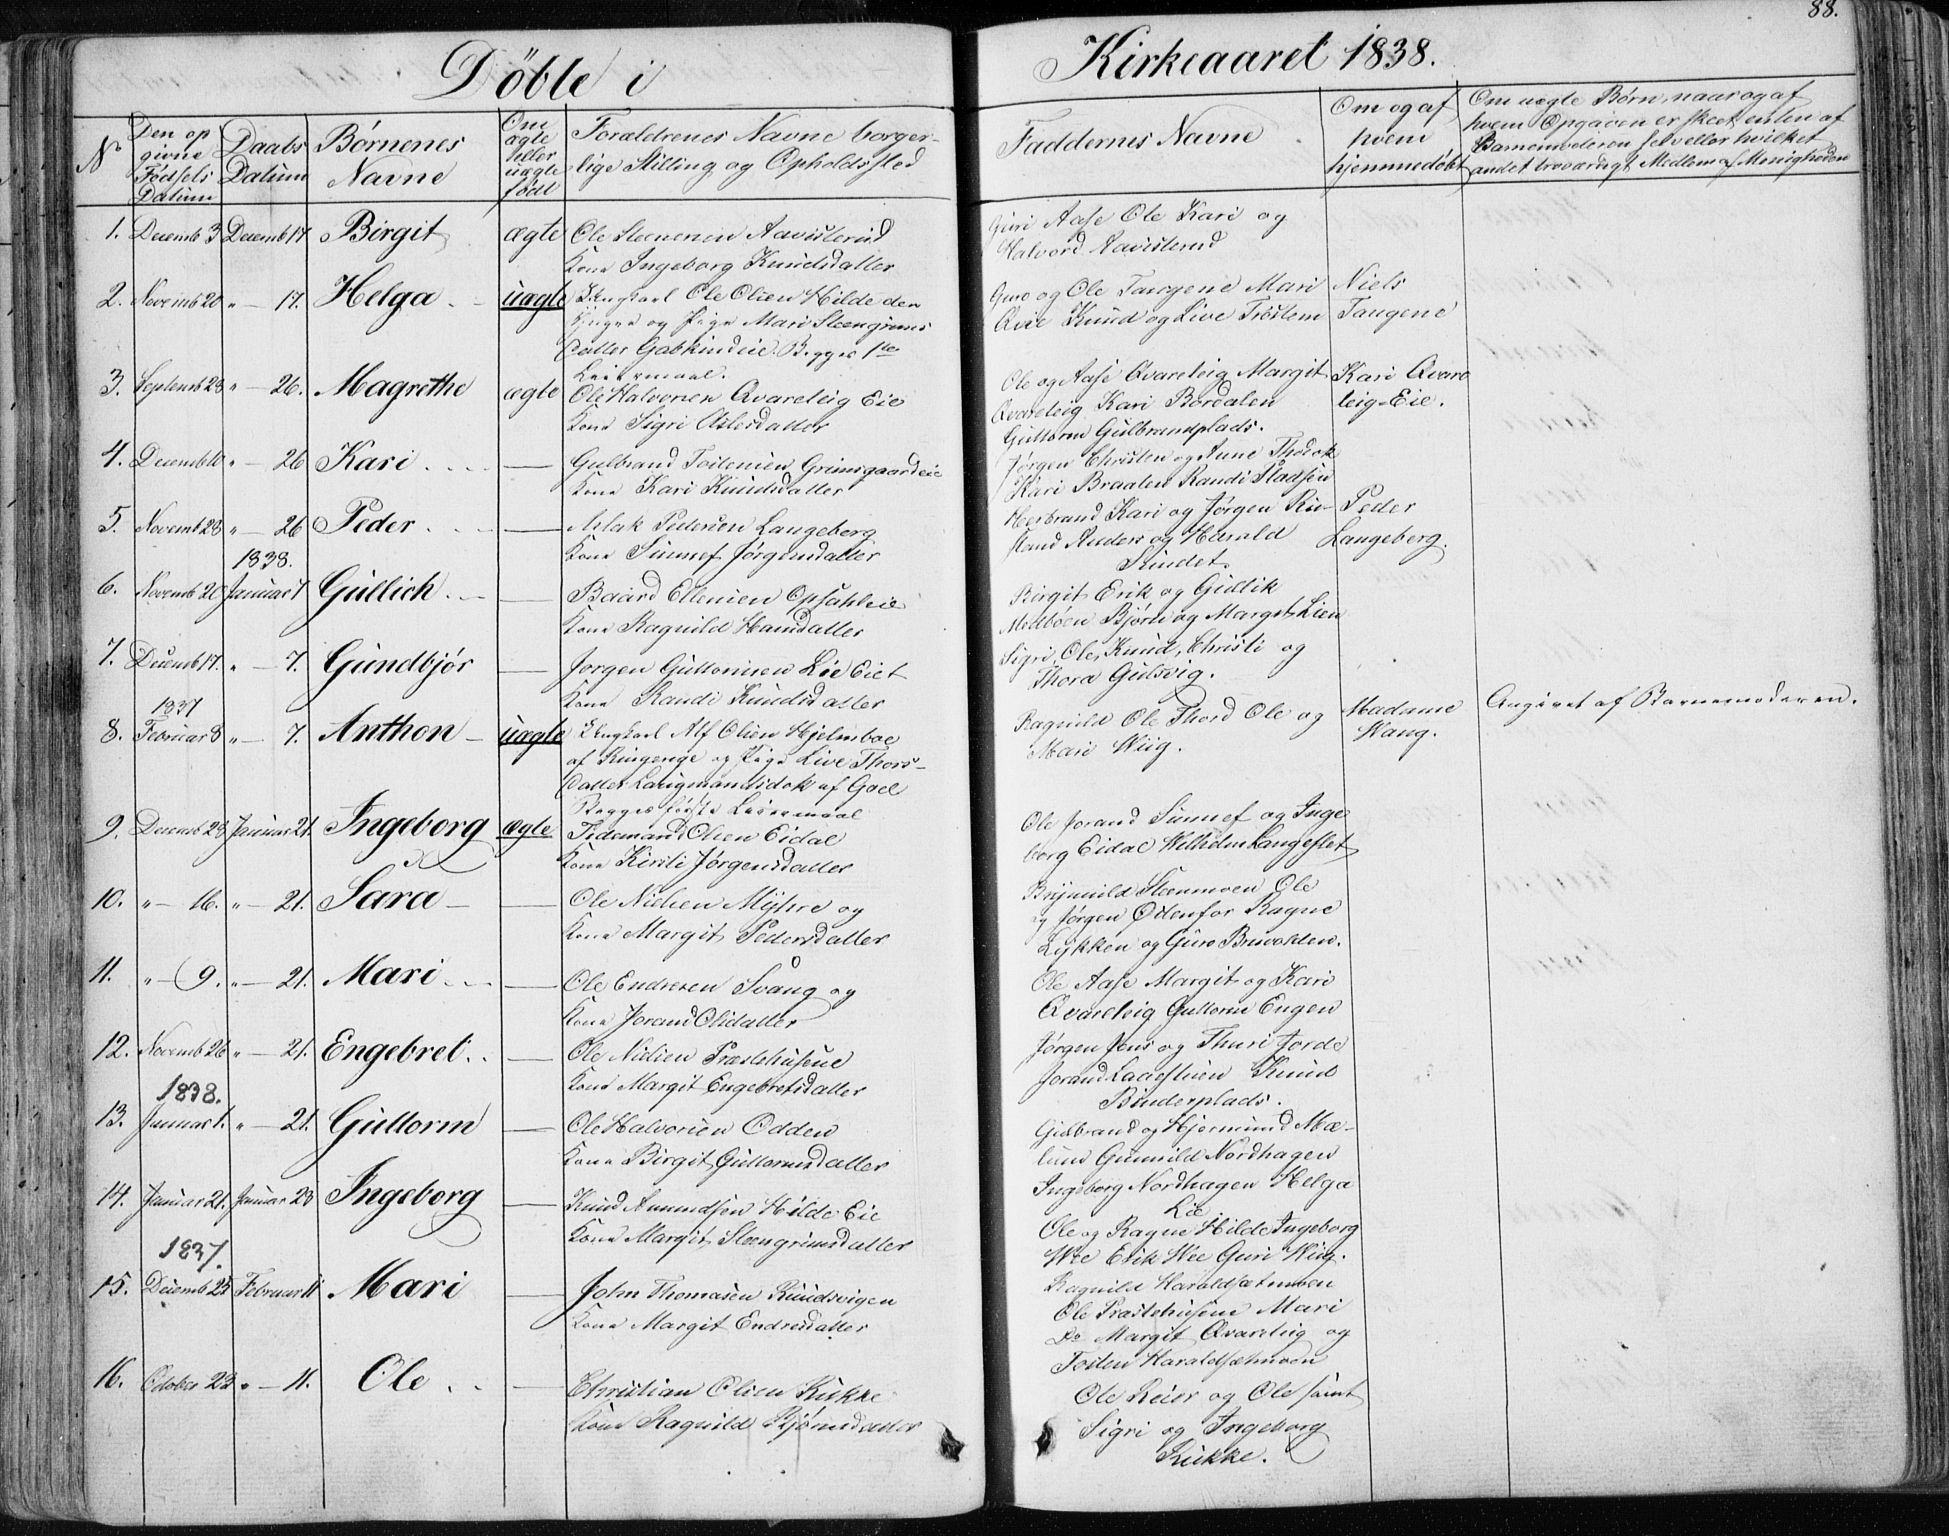 88.
Döbte i Kirkeaaret 1838.
No
Den op
givne
Fødsels
Datum
Daabs
Datum
Børnenes
Navne
Om
ægte
eller
uægte
født
Forældrenes Navne borger-
lige Stilling og Opholdssted
Faddernes Navne
Om og af
hvem
hjemmedøbt
Om uægte Børn, naar og af
hvem Opgaven er skeet enten af
Barnemoderen selv eller hvilket
andet troværdigt Medlem af Menigheden
1. Decemb 3 Decemb 17 Birgit ægte Ole Steenersen Aavisterud
Kone Ingeborg Knudsdatter
Guri Aase Ole Kari og
Halvord Aavisterud
2. Novemb 20 " — 17. Helga uægte Ungkarl Ole Olsen Hilde den
Yngre og Pige Mari Steengrims
datter Gabkindeie. Begges 1te
Leiermaal.
Guro og Ole Taugene Mari
Qvie Knud og Live Trostem
Niels
Taugene
3. Septemb 28 " — 26. Magrethe ægte Ole Halvorsen Qvareleig Eie
Kone Sigri Aslesdatter
Ole og Aase Qvareleig Margit
Qvareleig Kari Bordalen
Guttorm Gulbrandplads.
Kari Qvare
leig-Eie.
4. Decemb 10 " — 26 Kari — Gulbrand Tostensen Grimsgaardeie
Kone Kari Knudsdatter
Jørgen Christen og Anne Thodok
Kari Braaten Randi Stadsen
5. Novemb 28 " — 26 Peder — Aslak Pedersen Langeberg
Kone Sünnef Jørgensdatter
Herbrand Kari og Jørgen Ru-
stand Anders og Harald
Sundet.
Peder
Langeberg.
1838.
6. Novemb 20 Januar 7 Gullich — Baard Ellensen Opsahleie
Kone Ragnild Hansdatter
Birgit Erik og Gullik
Moenbøen Bjørn og Margit Lien
7. Decemb 17. " — 7. Gundbjør — Jørgen Guttormsen Lie Eiet
Kone Randi Knudsdatter
Sigri, Ole, Knud, Christi og
Thora Gulsvig.
1837
8. Februar 8 " — 7. Anthon — uægte Ungkarl Alf Olsen Hjelmboe
af Ringerige og Pige Live Thors-
datter Langmandsdok af Goel
Begges første Leiermaal
Ragnild Ole Thord Ole og
Mari Wiig.
Madame
Haug.
Angivet af Barnemoderen.
9. Decemb 28 Januar 21. Ingeborg ægte Tidemand Olsen Eidal
Kone Kirsti Jørgensdatter
Ole Jorand Sünnef og Inge
borg Eidal Wilhelm Langeslet
10. " — 16. " — 21. Sara — Ole Nielsen Myhre og
Kone Margit Pedersdatter
Brynnild Steenmoen Ole
og Jørgen Østenfor Ragne
Lykken og Guro Bruvolden.
11. " — 9. " — 21. Mari — Ole Endresen Svang og
Kone Jorand Olsdatter
Ole Aase Margit og Kari
Qvareleig Guttorm Engen
12. Novemb 26 " — 21. Engebret — Ole Nielsen Prestehusene
Kone Margit Engebretsdatter
Jørgen Jens og Thuri Jorde
Jorand Knud
Binderplads.
1838.
13. Januar 1. " — 21. Guttorm — Ole Halvorsen Odden
Kone Birgit Guttormsdatter
Gulbrand og Hjermund Mæ-
lum Gunnild Nordhagen
Ingeborg Nordhagen Helga
Lie
14. Januar 21. Januar 23 Ingeborg — Knud Amundsen Hilde Eie
Kone Margit Steengrimsdatter
Ole og Ragne Hilde Ingeborg
Wee Erik Wee Guri Wiig.
1837.
15. Decemb 25 Februar 11 Mari — John Thomasen Ruudsvigen
Kone Margit Endresdatter
Ragnild Haraldsætmoen
Ole Prestehusene Mari
Do Margit Qvareleig og
Tosten Haraldsætmoen
16. October 22 " — 11. Ole — Christian Olsen Kukke
Kone Ragnild Bjørnsdatter
Ole Reier og Ole samt
Sigri og Ingeborg
Kukke.